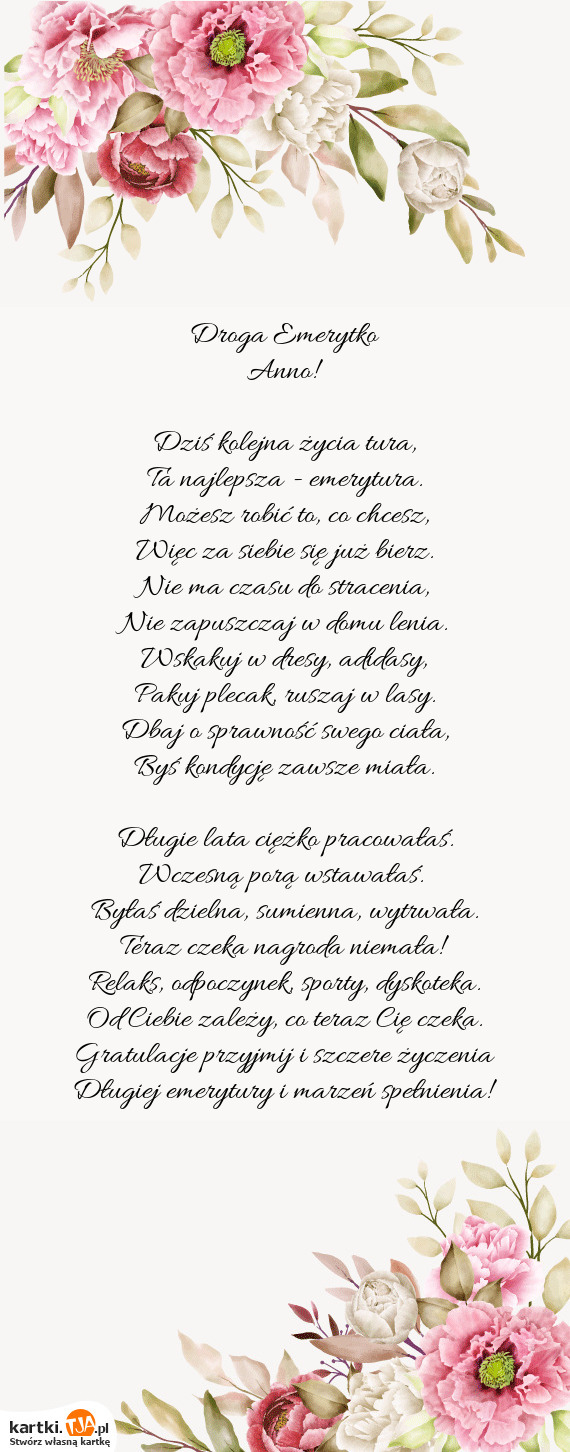 Droga Emerytko
Anno!
Dziś kolejna życia tura,
Ta najlepsza - emerytura.
Możesz robić to, co chcesz,
Więc za siebie się już bierz.
Nie ma czasu do stracenia,
Nie zapuszczaj w domu lenia.
Wskakuj w dresy, adidasy,
Pakuj plecak, ruszaj w lasy.
Dbaj o sprawność swego ciała,
Byś kondycję zawsze miała.
Długie lata ciężko pracowałaś.
Wczesną porą wstawałaś.
Byłaś dzielna, sumienna, wytrwała.
Teraz czeka nagroda niemała!
Relaks, odpoczynek, sporty, dyskoteka.
Od Ciebie zależy, co teraz Cię czeka.
Gratulacje przyjmij i szczere życzenia
Długiej emerytury i marzeń spełnienia!
kartki.TJA.pl
Stwórz własną kartkę